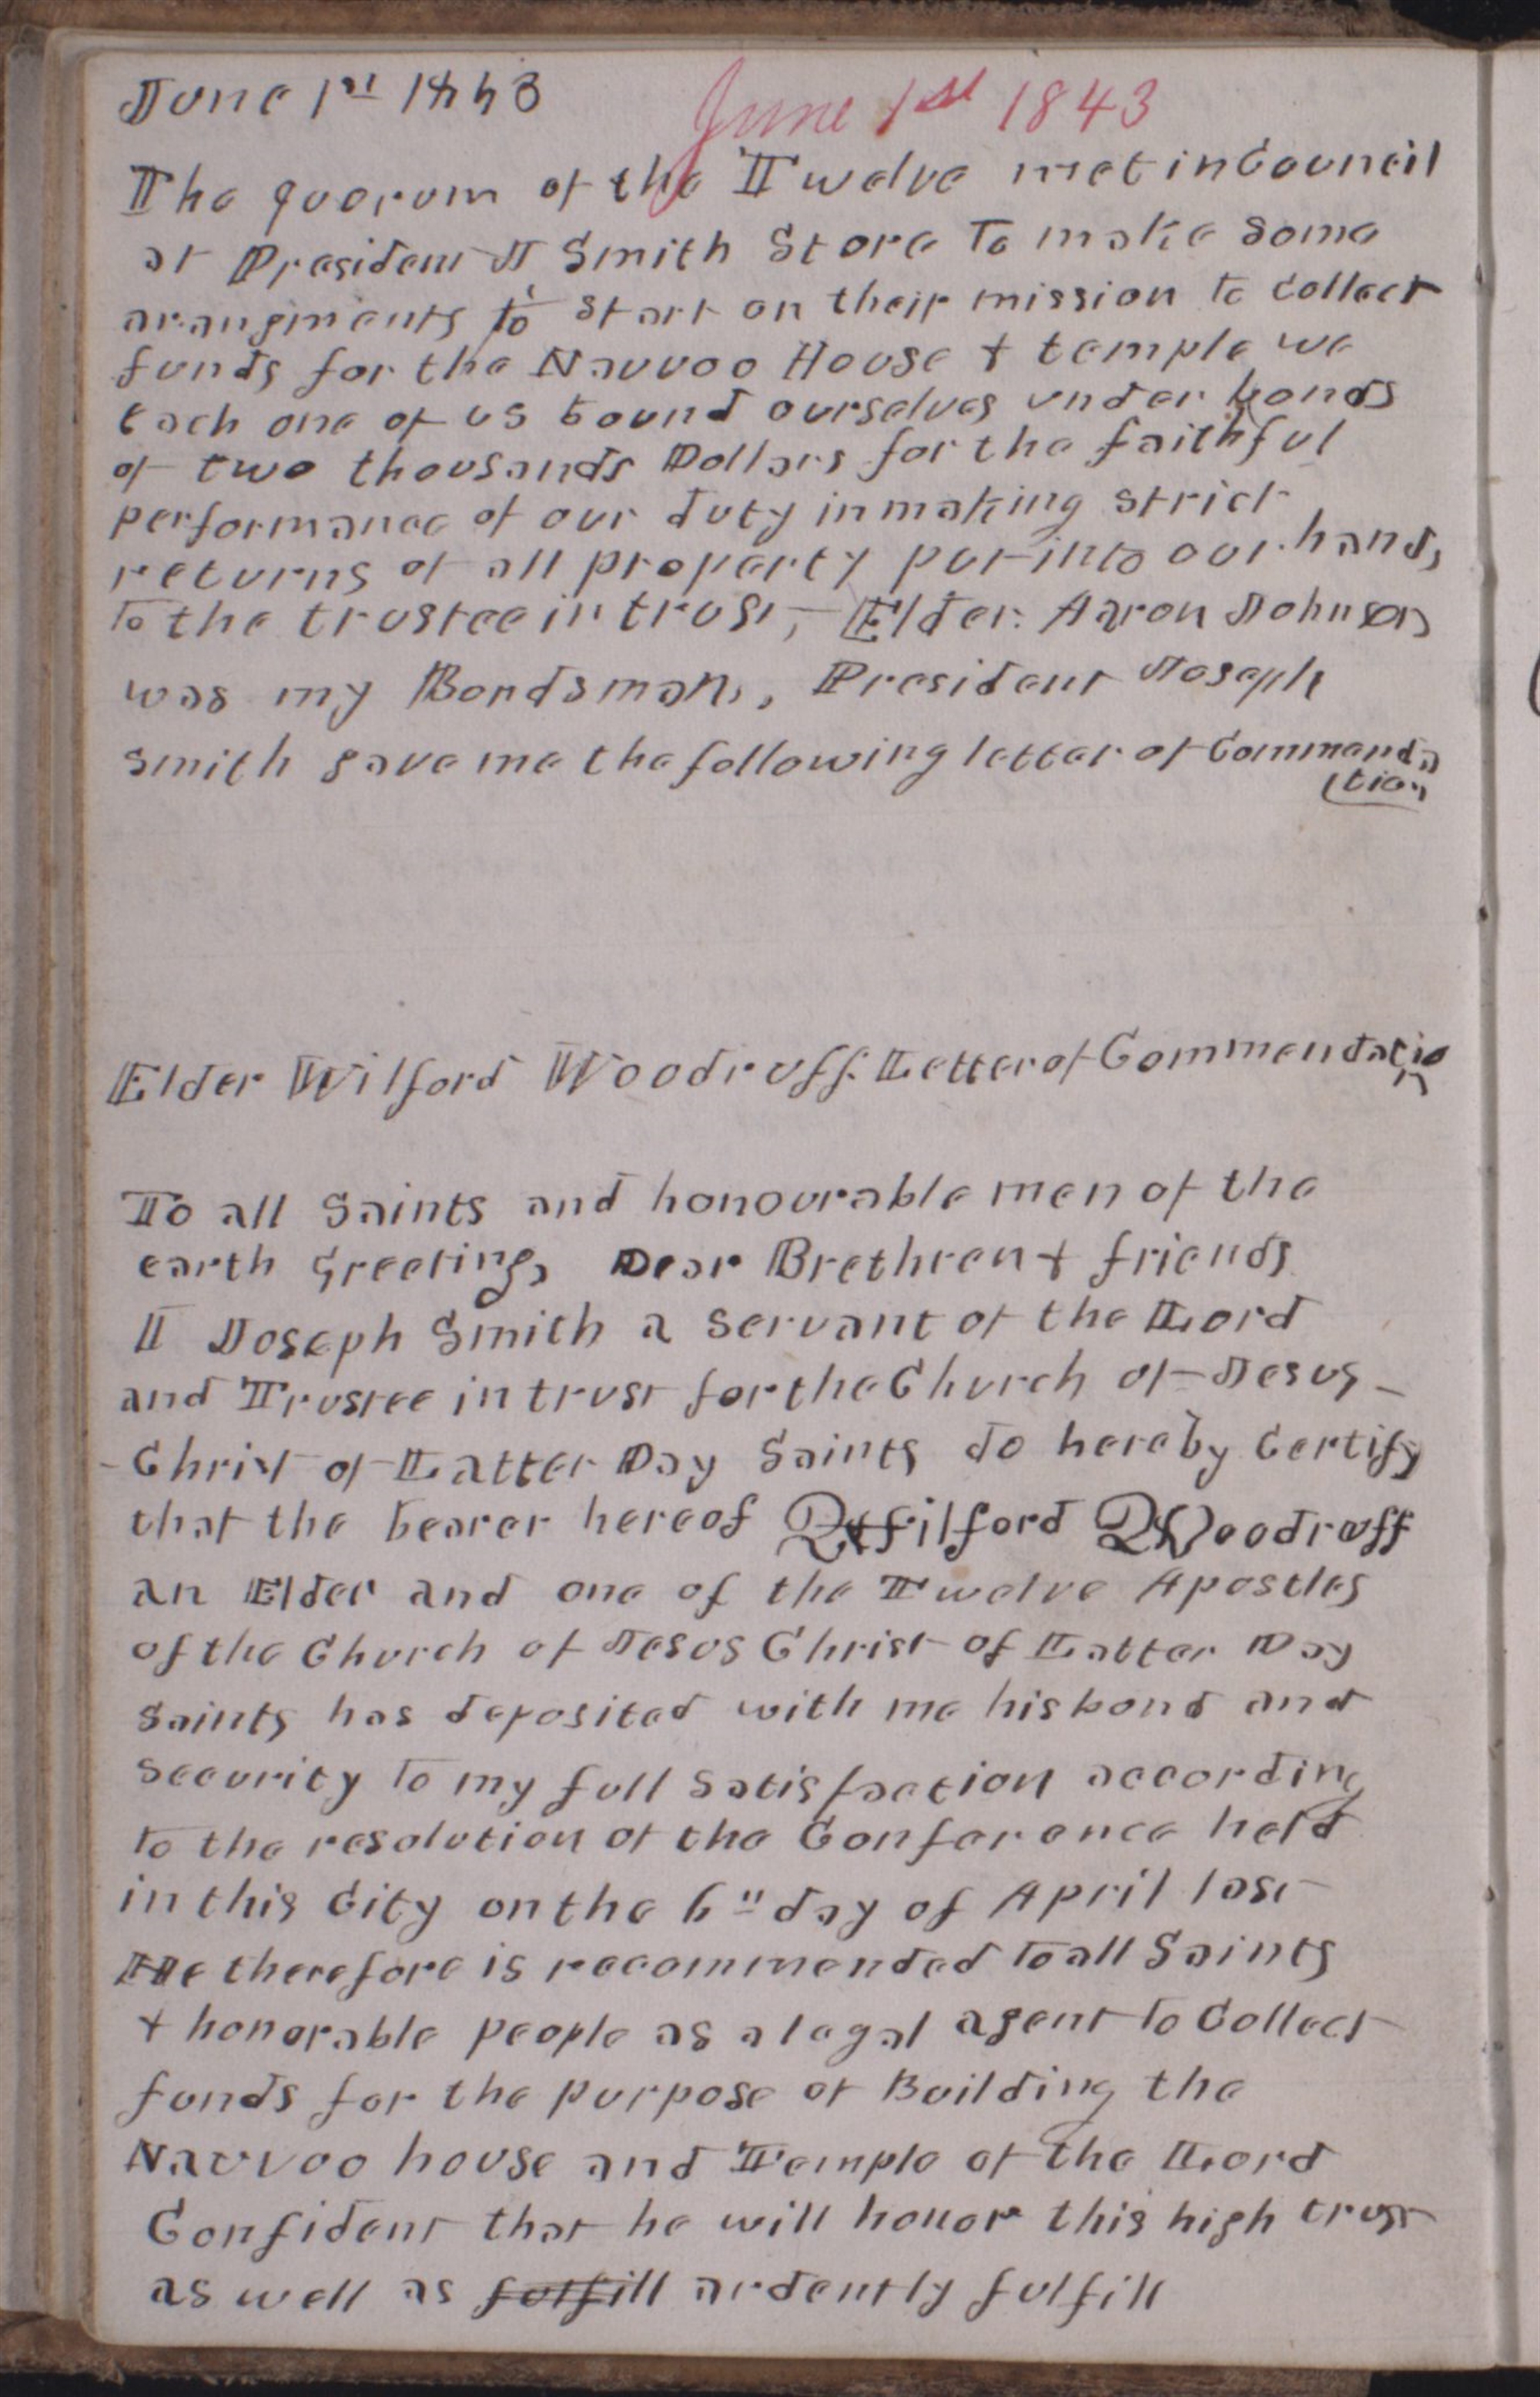 June 1st 1843
June 1st 1843
The quorum of the Twelve met in Council
at President J Smith Store to make some
arangments to start on their mission to collect
funds for the Nauvoo House + temple we
each one of us bound ourselves under bonds
of two thousands Dollars for the faithful
performance of our duty in making strict
returns of all property put into our hands
to the trustee in trust, - Elder Aaron Johnson
was my Bondsman, President Joseph
Smith gave me the following letter of Commenda
(tion
Elder Wilford Woodruff Letter of Commendatio
n
To all Saints and honourable men of the
earth Greeting, Dear Brethren + friends
I Joseph Smith a servant of the Lord
and Trustee in trust for the Church of Jesus-
-Christ of Latter Day Saints do hereby Certify
that the bearer hereof Wilford Woodruff
an Elder and one of the Twelve Apostles
of the Church of Jesus Christ of Latter Day
Saints has deposited with me his bond and
security to my full satisfaction according
to the resolution of the Conference held
in this City on the 6th day of April last
He therefore is recommended to all Saints
+ honorable people as a legal agent to Collect
funds for the purpose of Building the
Nauvoo house and Temple of the Lord
Confident that he will honor this high trust
as well as fulfill ardently fulfill